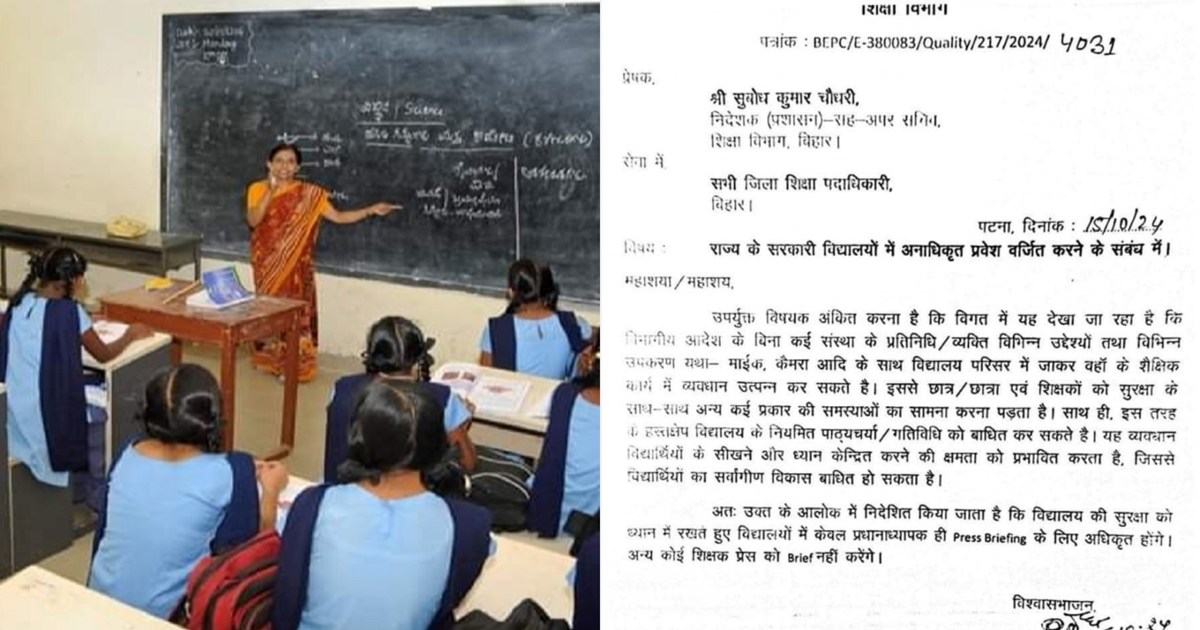 Monday
विज्ञान / Science
शिक्षा विभाग
पत्रांक : BEPC/E-380083/Quality/217/2024/ 4031
प्रेषक,
श्री सुबोध कुमार चौधरी,
निदेशक (प्रशासन)–सह–अपर सचिव,
शिक्षा विभाग, बिहार।
सेवा में,
सभी जिला शिक्षा पदाधिकारी,
बिहार।
पटना, दिनांक : 15/10/24
विषय : राज्य के सरकारी विद्यालयों में अनाधिकृत प्रवेश वर्जित करने के संबंध में।
महाशया/महाशय,
उपर्युक्त विषयक अंकित करना है कि विगत में यह देखा जा रहा है कि
विभागीय आदेश के बिना कई संस्था के प्रतिनिधि/व्यक्ति विभिन्न उद्देश्यों तथा विभिन्न
उपकरण यथा– माईक, कैमरा आदि के साथ विद्यालय परिसर में जाकर वहाँ के शैक्षिक
कार्य में व्यवधान उत्पन्न कर सकते है। इससे छात्र/छात्रा एवं शिक्षकों को सुरक्षा के
साथ–साथ अन्य कई प्रकार की समस्याओं का सामना करना पड़ता है। साथ ही, इस तरह
के हस्तक्षेप विद्यालय के नियमित पाठ्यचर्या/गतिविधि को बाधित कर सकते है। यह व्यवधान
विद्यार्थियों के सीखने और ध्यान केन्द्रित करने की क्षमता को प्रभावित करता है, जिससे
विद्यार्थियों का सर्वांगीण विकास बाधित हो सकता है।
अतः उक्त के आलोक में निदेशित किया जाता है कि विद्यालय की सुरक्षा को
ध्यान में रखते हुए विद्यालयों में केवल प्रधानाध्यापक ही Press Briefing के लिए अधिकृत होंगे।
अन्य कोई शिक्षक प्रेस को Brief नहीं करेंगे।
विश्वासभाजन,